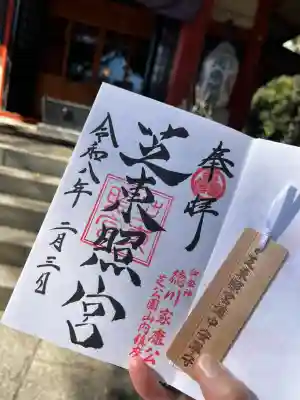 奉拝
芝東照宮
御祭神
徳川家康公
芝公園山内鎮座
令和八年
二月三日
芝東照宮道中安護守